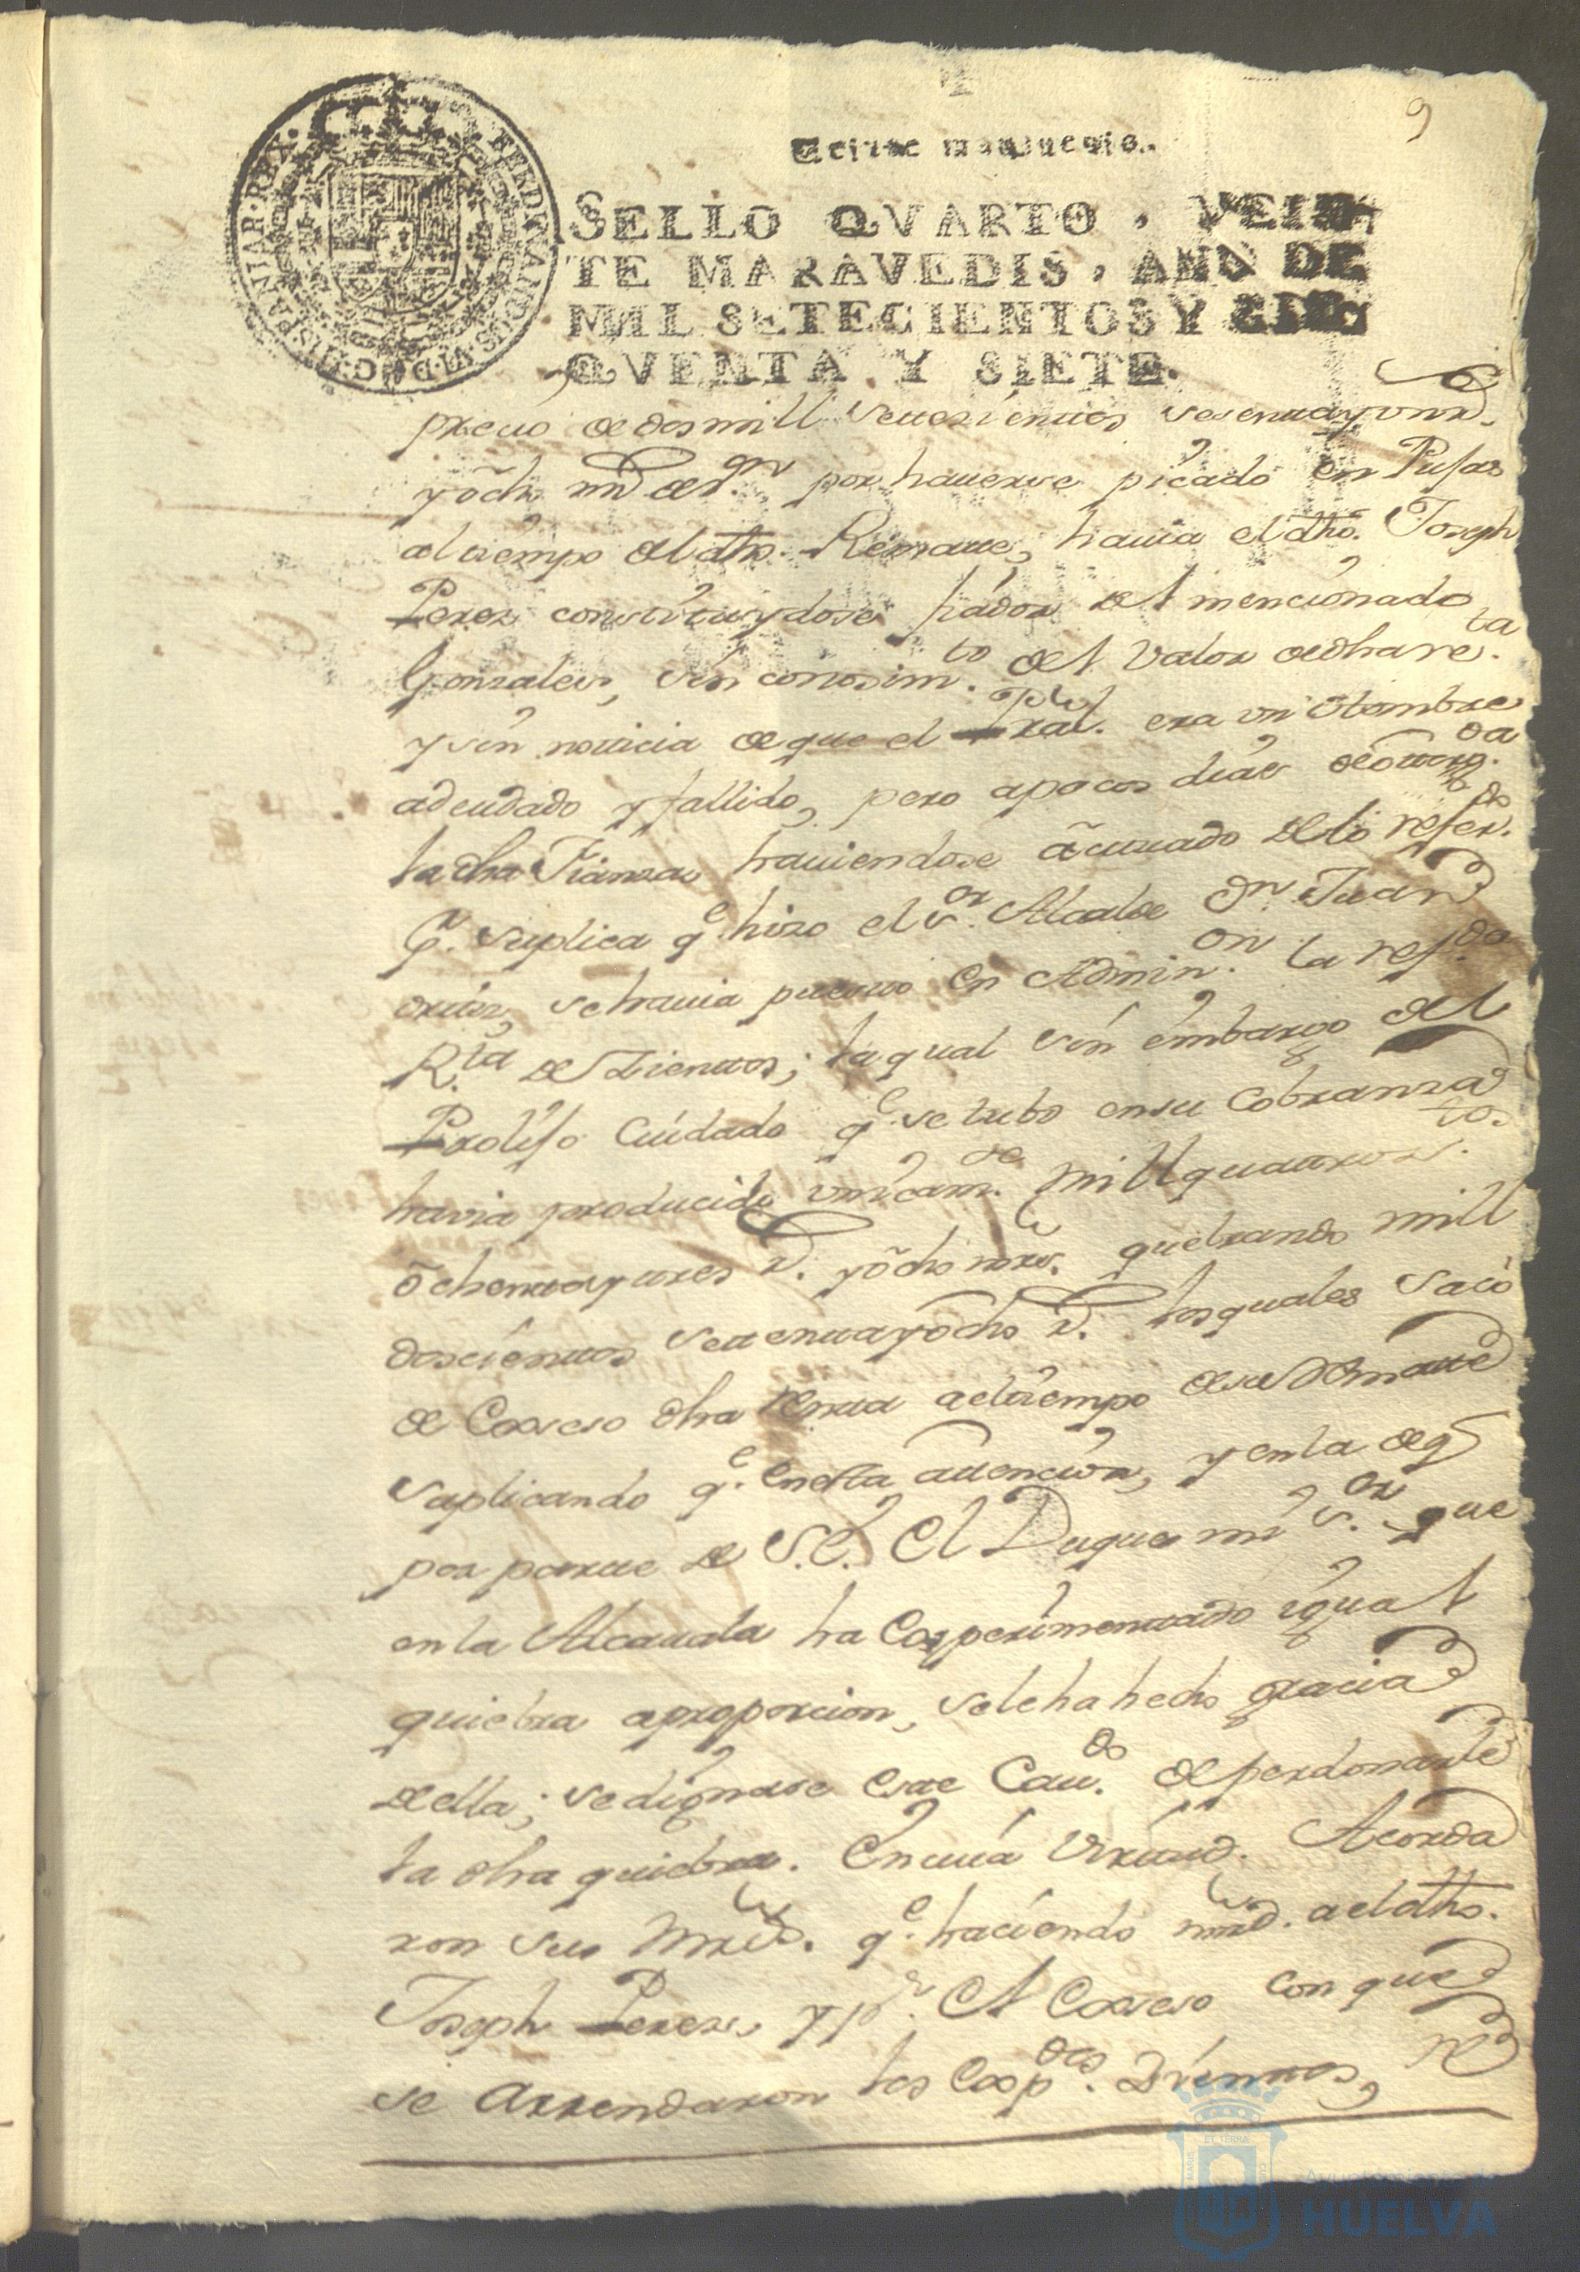 9
Veinte maravedis.
SELLO QVARTO, VEIN
TE MARAVEDIS, AÑO DE
MIL SETECIENTOS Y CIN
QVENTA Y SIETE.
FERDINANDUS VI D G HISPANIAR REX
precio de dos mill setesientos sesenta y un rs.
y ocho mrs de von por haverse picado en Pujas
al tiempo del dho. Remate, havia el dho. Joseph
Perez constituydose fiador del mencionado
Gonzales, sin conosimto. del Valor de dha renta.
y sin noticia de que el Pral. era un Hombre
adeudado y fallido, pero a pocos dias de otorgda.
la dha Fianza haviendose actuado de lo referdo.
Pr. suplica qe. hizo el sor. Alcalde Dn. Juan
ortiz, se havia puesto en Adminon. la refda
Rta de Vientos; la qual sin embargo del
Prolijo Cuidado qe. se tubo en su Cobranza
havia producido unicamte. mill quatrostos.
ochenta y tres rs. y ocho mrs. quebrando mill
doscientos setenta y ocho rs. los quales saco
de Exseso dha Renta a el tiempo de su Remate
suplicando qe. en esta attencion, y en la de q
por parte de S. E. El Duque mi sor. que
en la Alcavala ha Experimentado igual
quiebra a proporcion, se le ha hecho gracia
de ella; se dignase este Cavdo. de perdonarle
la dha quiebra. En cuia Virtud. Acorda
ron sus Mrds. qe. haciendo mrd. a el dho.
Joseph Perez, y pr. el Exseso con que
se Arrendaron los Expdos. Vientos, re
ET TERRAE
Ayuntamiento de
HUELVA